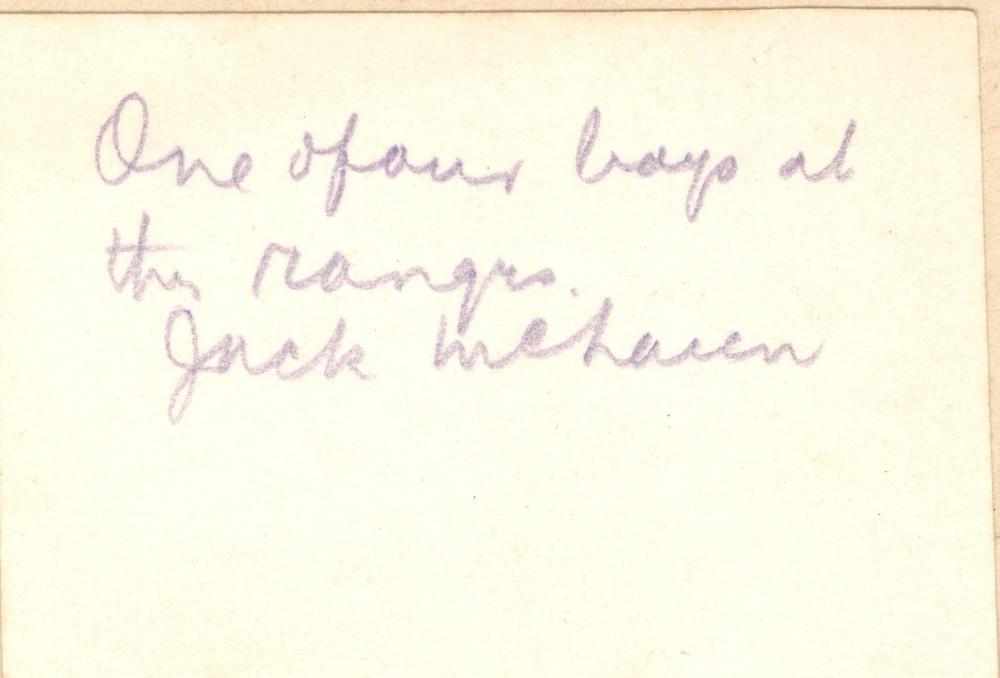 One of our boys at
the ranges.
Jack